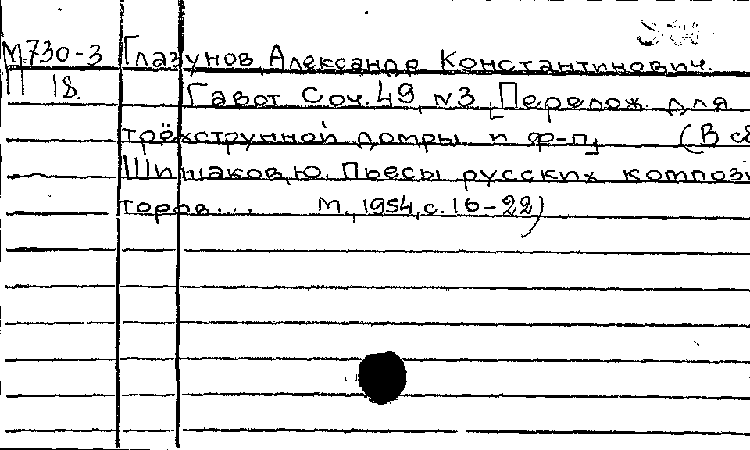 М730-3 Глазунов, Александр Константинович.
П 18 Гавот Соч.49, №3 [Перелож. для
трёхструнной домры и ф-п] (В сб
Шишаков,Ю. Пьесы русских компози
торов... М., 1954, с. 16-22)